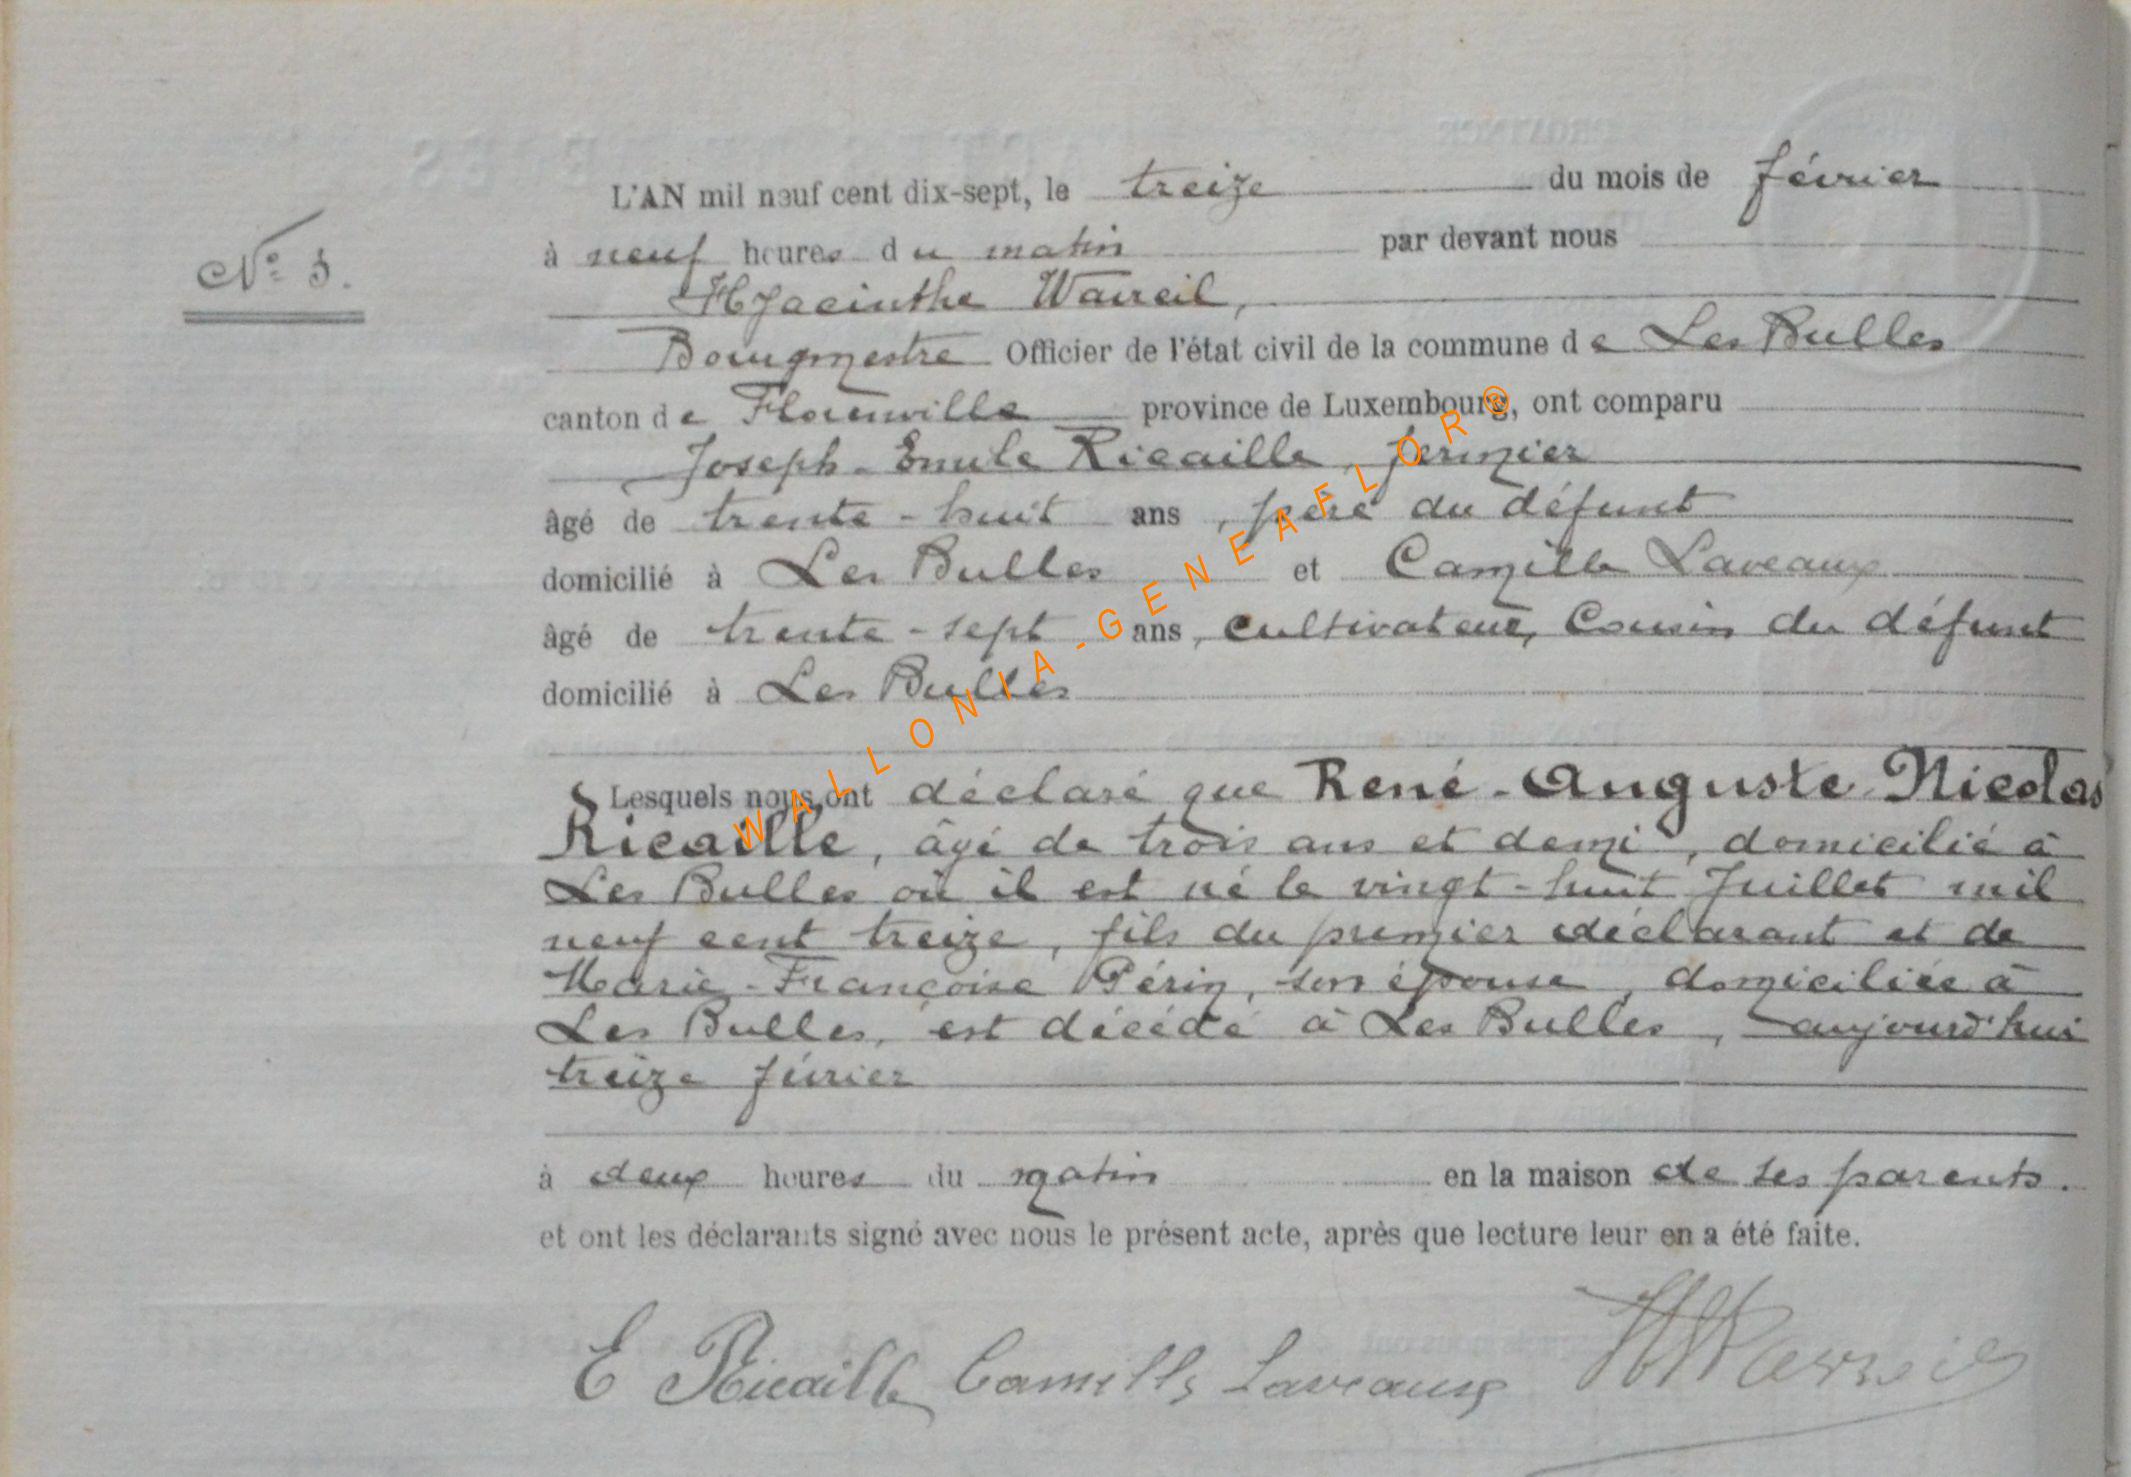 L'AN mil neuf cent dix-sept, le treize du mois de février
à neuf heures du matin par devant nous
N° 3.
Hyacinthe Wavreil,
Bourgmestre Officier de l'état civil de la commune de Les Bulles
canton de Florenville province de Luxembourg, ont comparu
Joseph-Emile Ricaille, fermier
âgé de trente-huit ans, père du défunt
domicilié à Les Bulles et Camille Laveaux
âgé de trente-sept ans, cultivateur, Cousin du défunt
domicilié à Les Bulles
Lesquels nous ont déclaré que René-Auguste-Nicolas
Ricaille, âgé de trois ans et demi, domicilié à
Les Bulles où il est né le vingt-huit Juillet mil
neuf cent treize, fils du premier déclarant et de
Marie-Françoise Périn, son épouse, domiciliée à
Les Bulles, est décédé à Les Bulles, aujourd'hui
treize février
à deux heures du matin en la maison de ses parents.
et ont les déclarants signé avec nous le présent acte, après que lecture leur en a été faite.
E Ricaille Camille Laveaux
WALLONIA-GENEAFLOR®